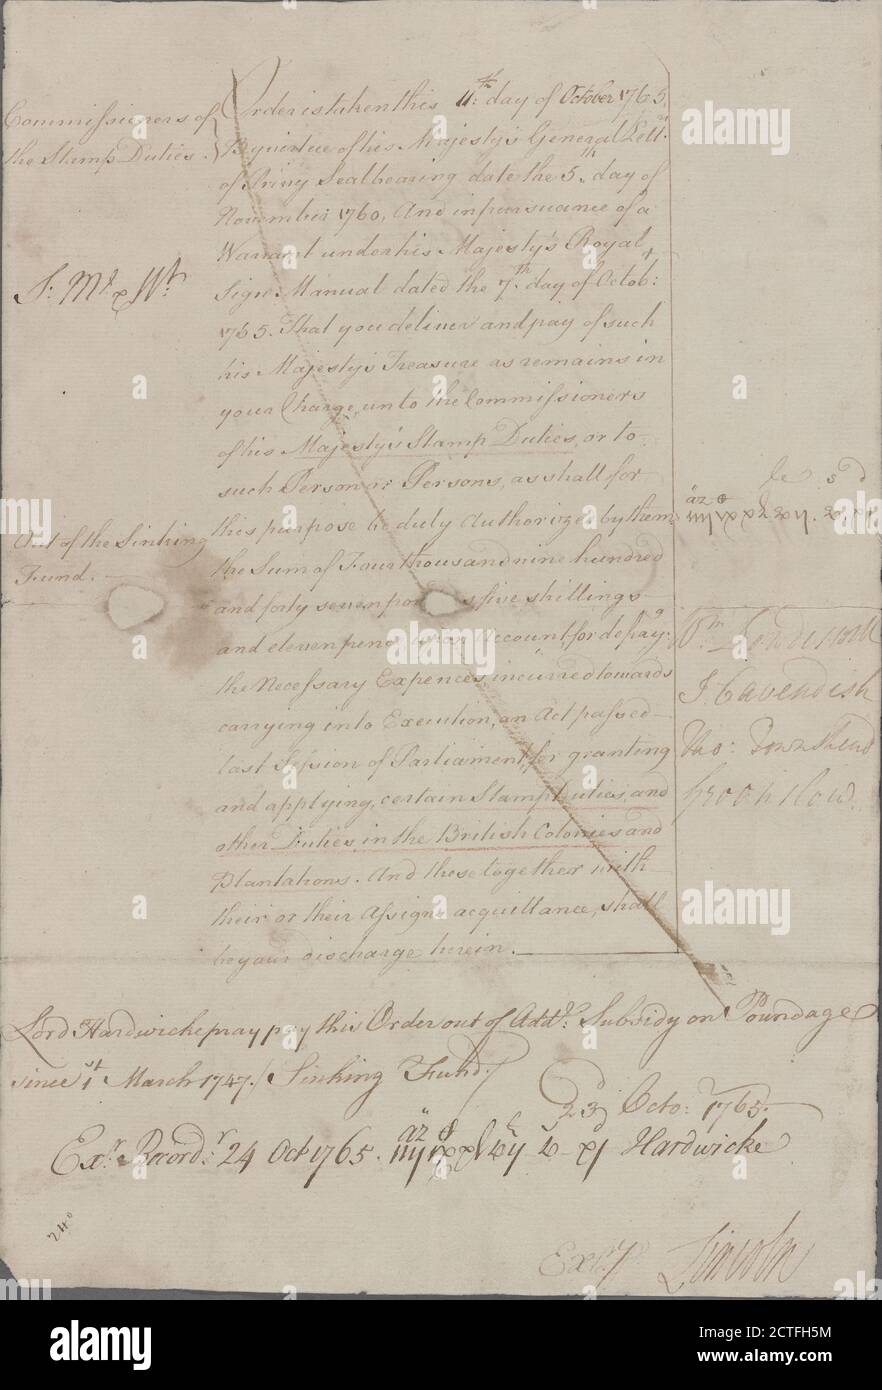 Commissioners of
the Stamp Duties.
Order is taken this 11th. day of October 1765.
By virtue of his Majesty's General Lettrs
of Privy Seal bearing date the 5th. day of
November 1760, And in pursuance of a
Warrant under his Majesty's Royal
Sign Manual dated the 7th. day of Octobr:
1765. That you deliver and pay of such
his Majesty's Treasure as remains in
your Charge, unto the Commissioners
of his Majesty's Stamp Duties, or to
such Person or Persons, as shall for
this purpose be duly Authorized by them
the Sum of Four thousand nine hundred
and forty seven five shillings
and eleven pence upon Account, for defrayg:
the Necessary Expences, incurred towards
carrying into Execution, an Act passed
last Session of Parliament, for granting
and applying, certain Stamp Duties, and
other Duties, in the British Colonies and
Plantations. And these together with
their or their Assigns acquittance, shall
be your discharge herein.
Out of the Sinking
Fund.
J: Cavendish
Tho: Townshend
Lord Hardwicke pray pay this Order out of Addl: Subsidy on Poundage
since 1st March 1747. / Sinking Fund /
23d Octo: 1765.
Exr. Recordr: 24 Oct 1765. Hardwicke
240
Lincoln
alamy
a
Image ID: 2CTFH5M
www.alamy.com